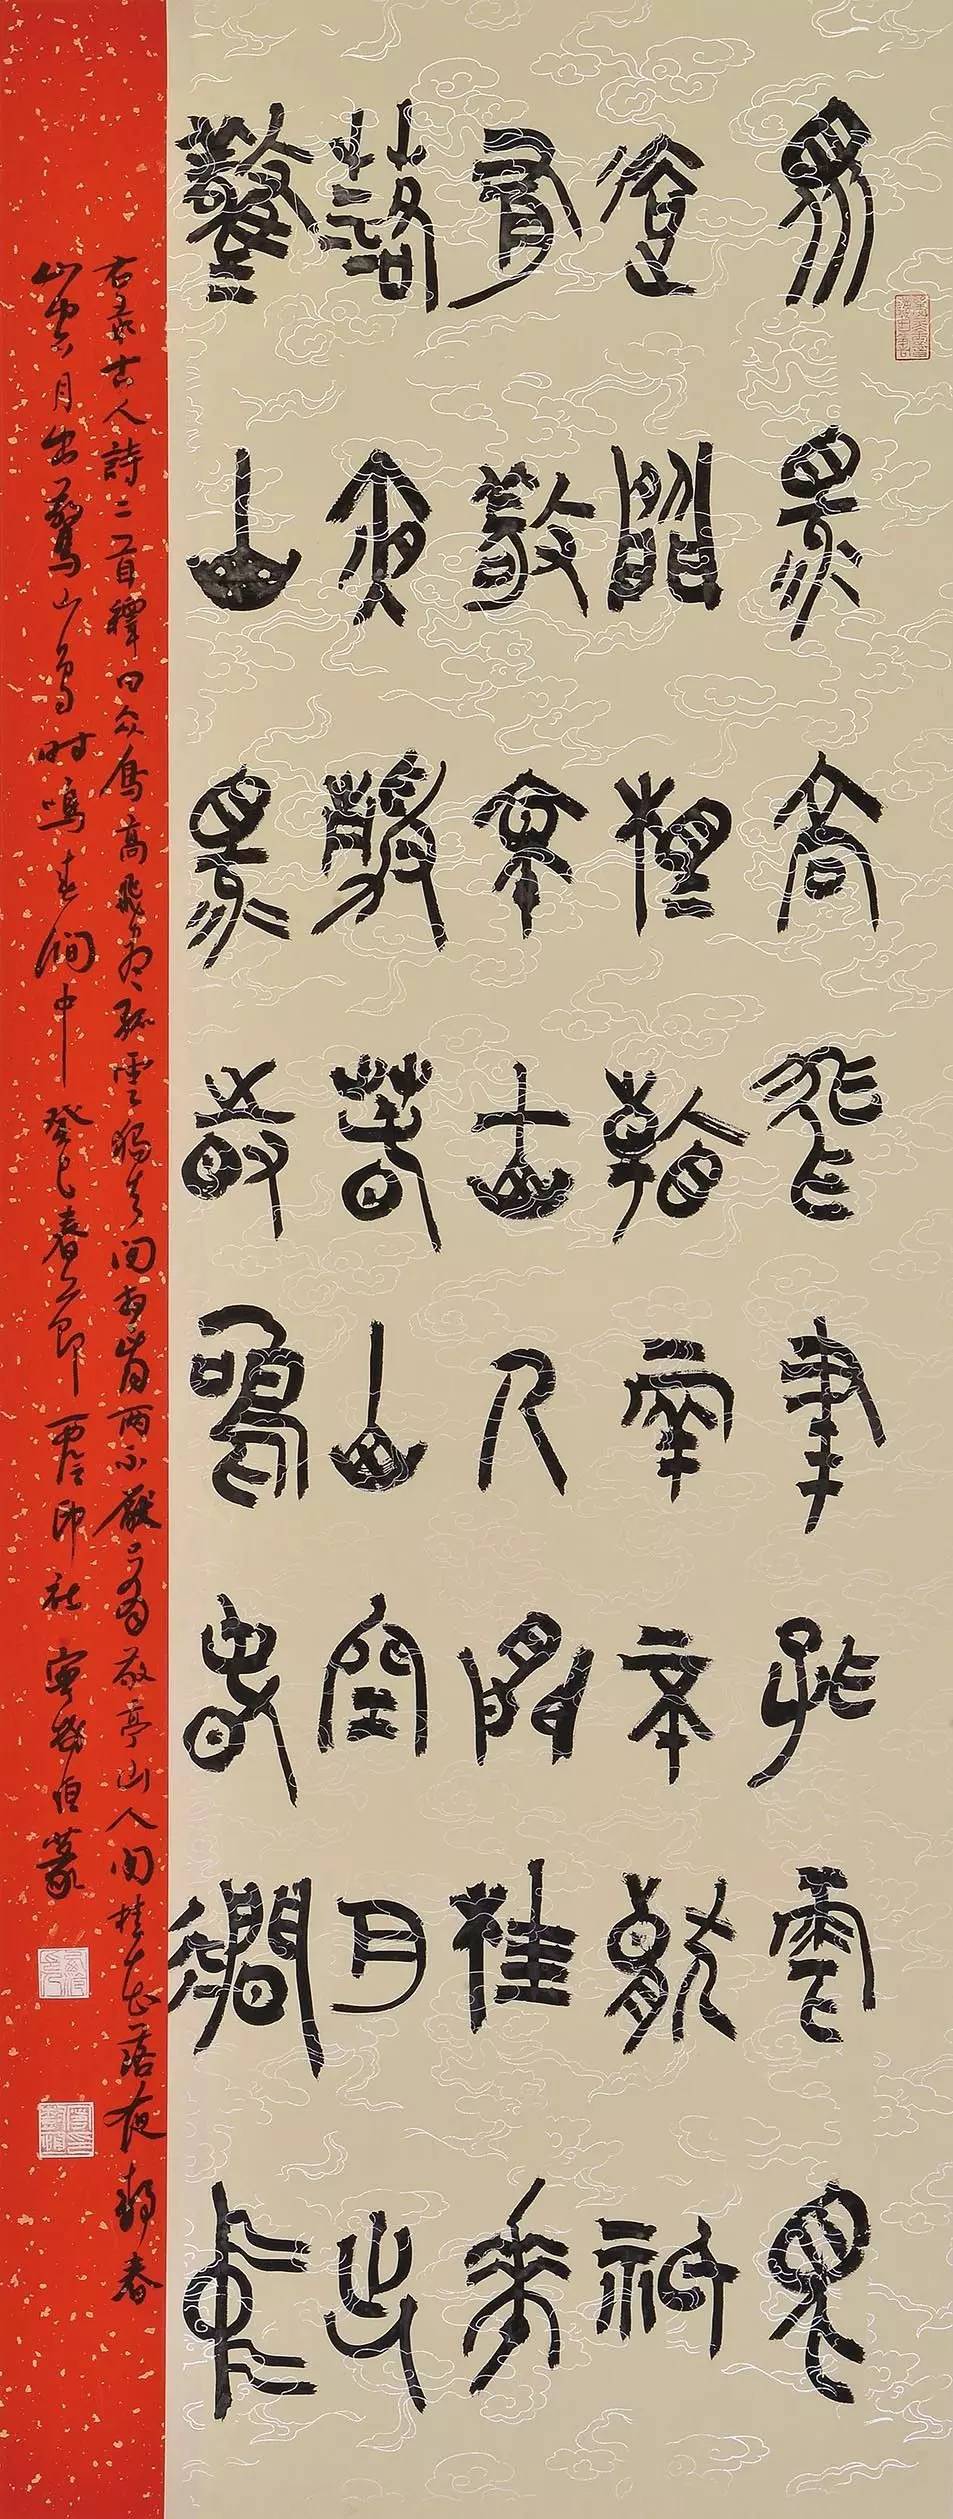 眾鳥高飛盡孤雲獨
去閒相看兩不厭衹
有敬亭山人閒桂華
落夜靜春山空月出
驚山鳥時鳴春澗中
右录古人詩二首釋曰众鳥高飛尽孤雲獨去闲相看兩不厭只有敬亭山人闲桂花落夜靜春
山空月出驚山鳥时鳴春澗中癸巳春節西泠印社篆